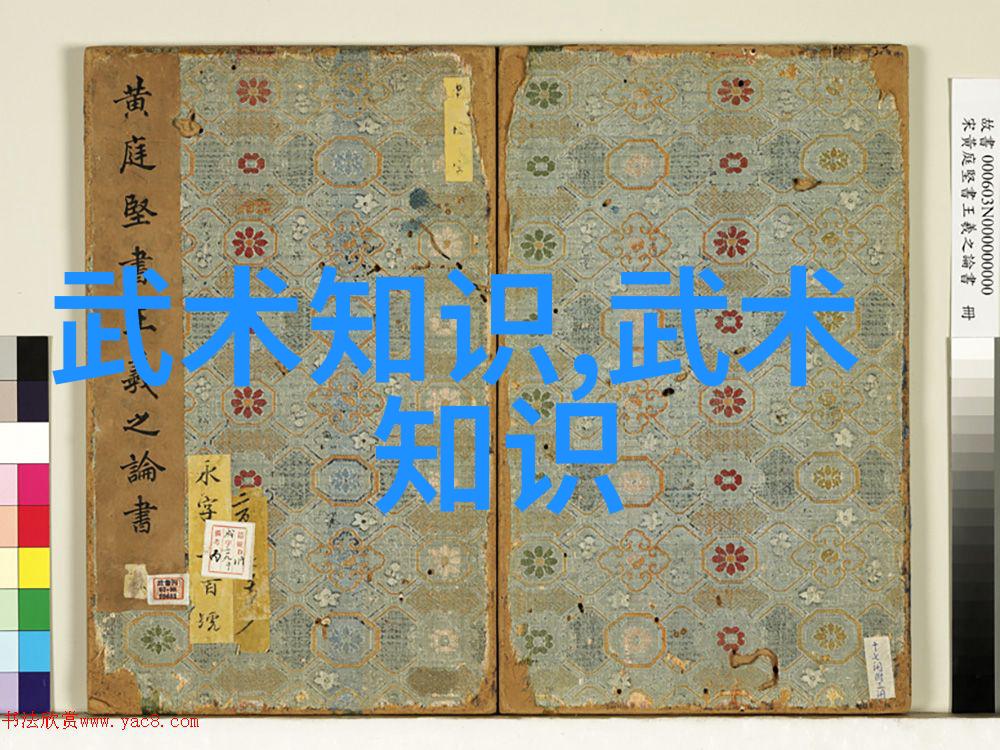 武术知识,武术
知识
黄庭堅書王羲之論書
永字 百號
故書 000603N000000000
宋黄庭堅書王羲之論書 冊
书法欣赏www.yac8.com